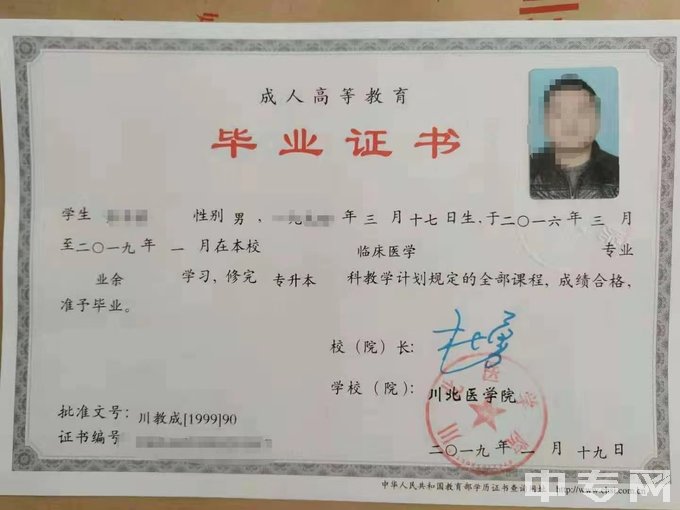 成人高等教育
毕业证书
学生 性别 男，一九 年 三 月 十七 日生，于二〇一六年 三 月
至二〇一九年 一 月在本校 临床医学 专业
业余 学习，修完 专升本 科教学计划规定的全部课程，成绩合格，
准予毕业。
校（院）长：
学校（院）：川北医学院
批准文号：川教成[1999]90
证书编号
二〇一九年 一 月 十九日
中华人民共和国教育部学历证书查询网址 http://www.chsi.com.cn
中专网